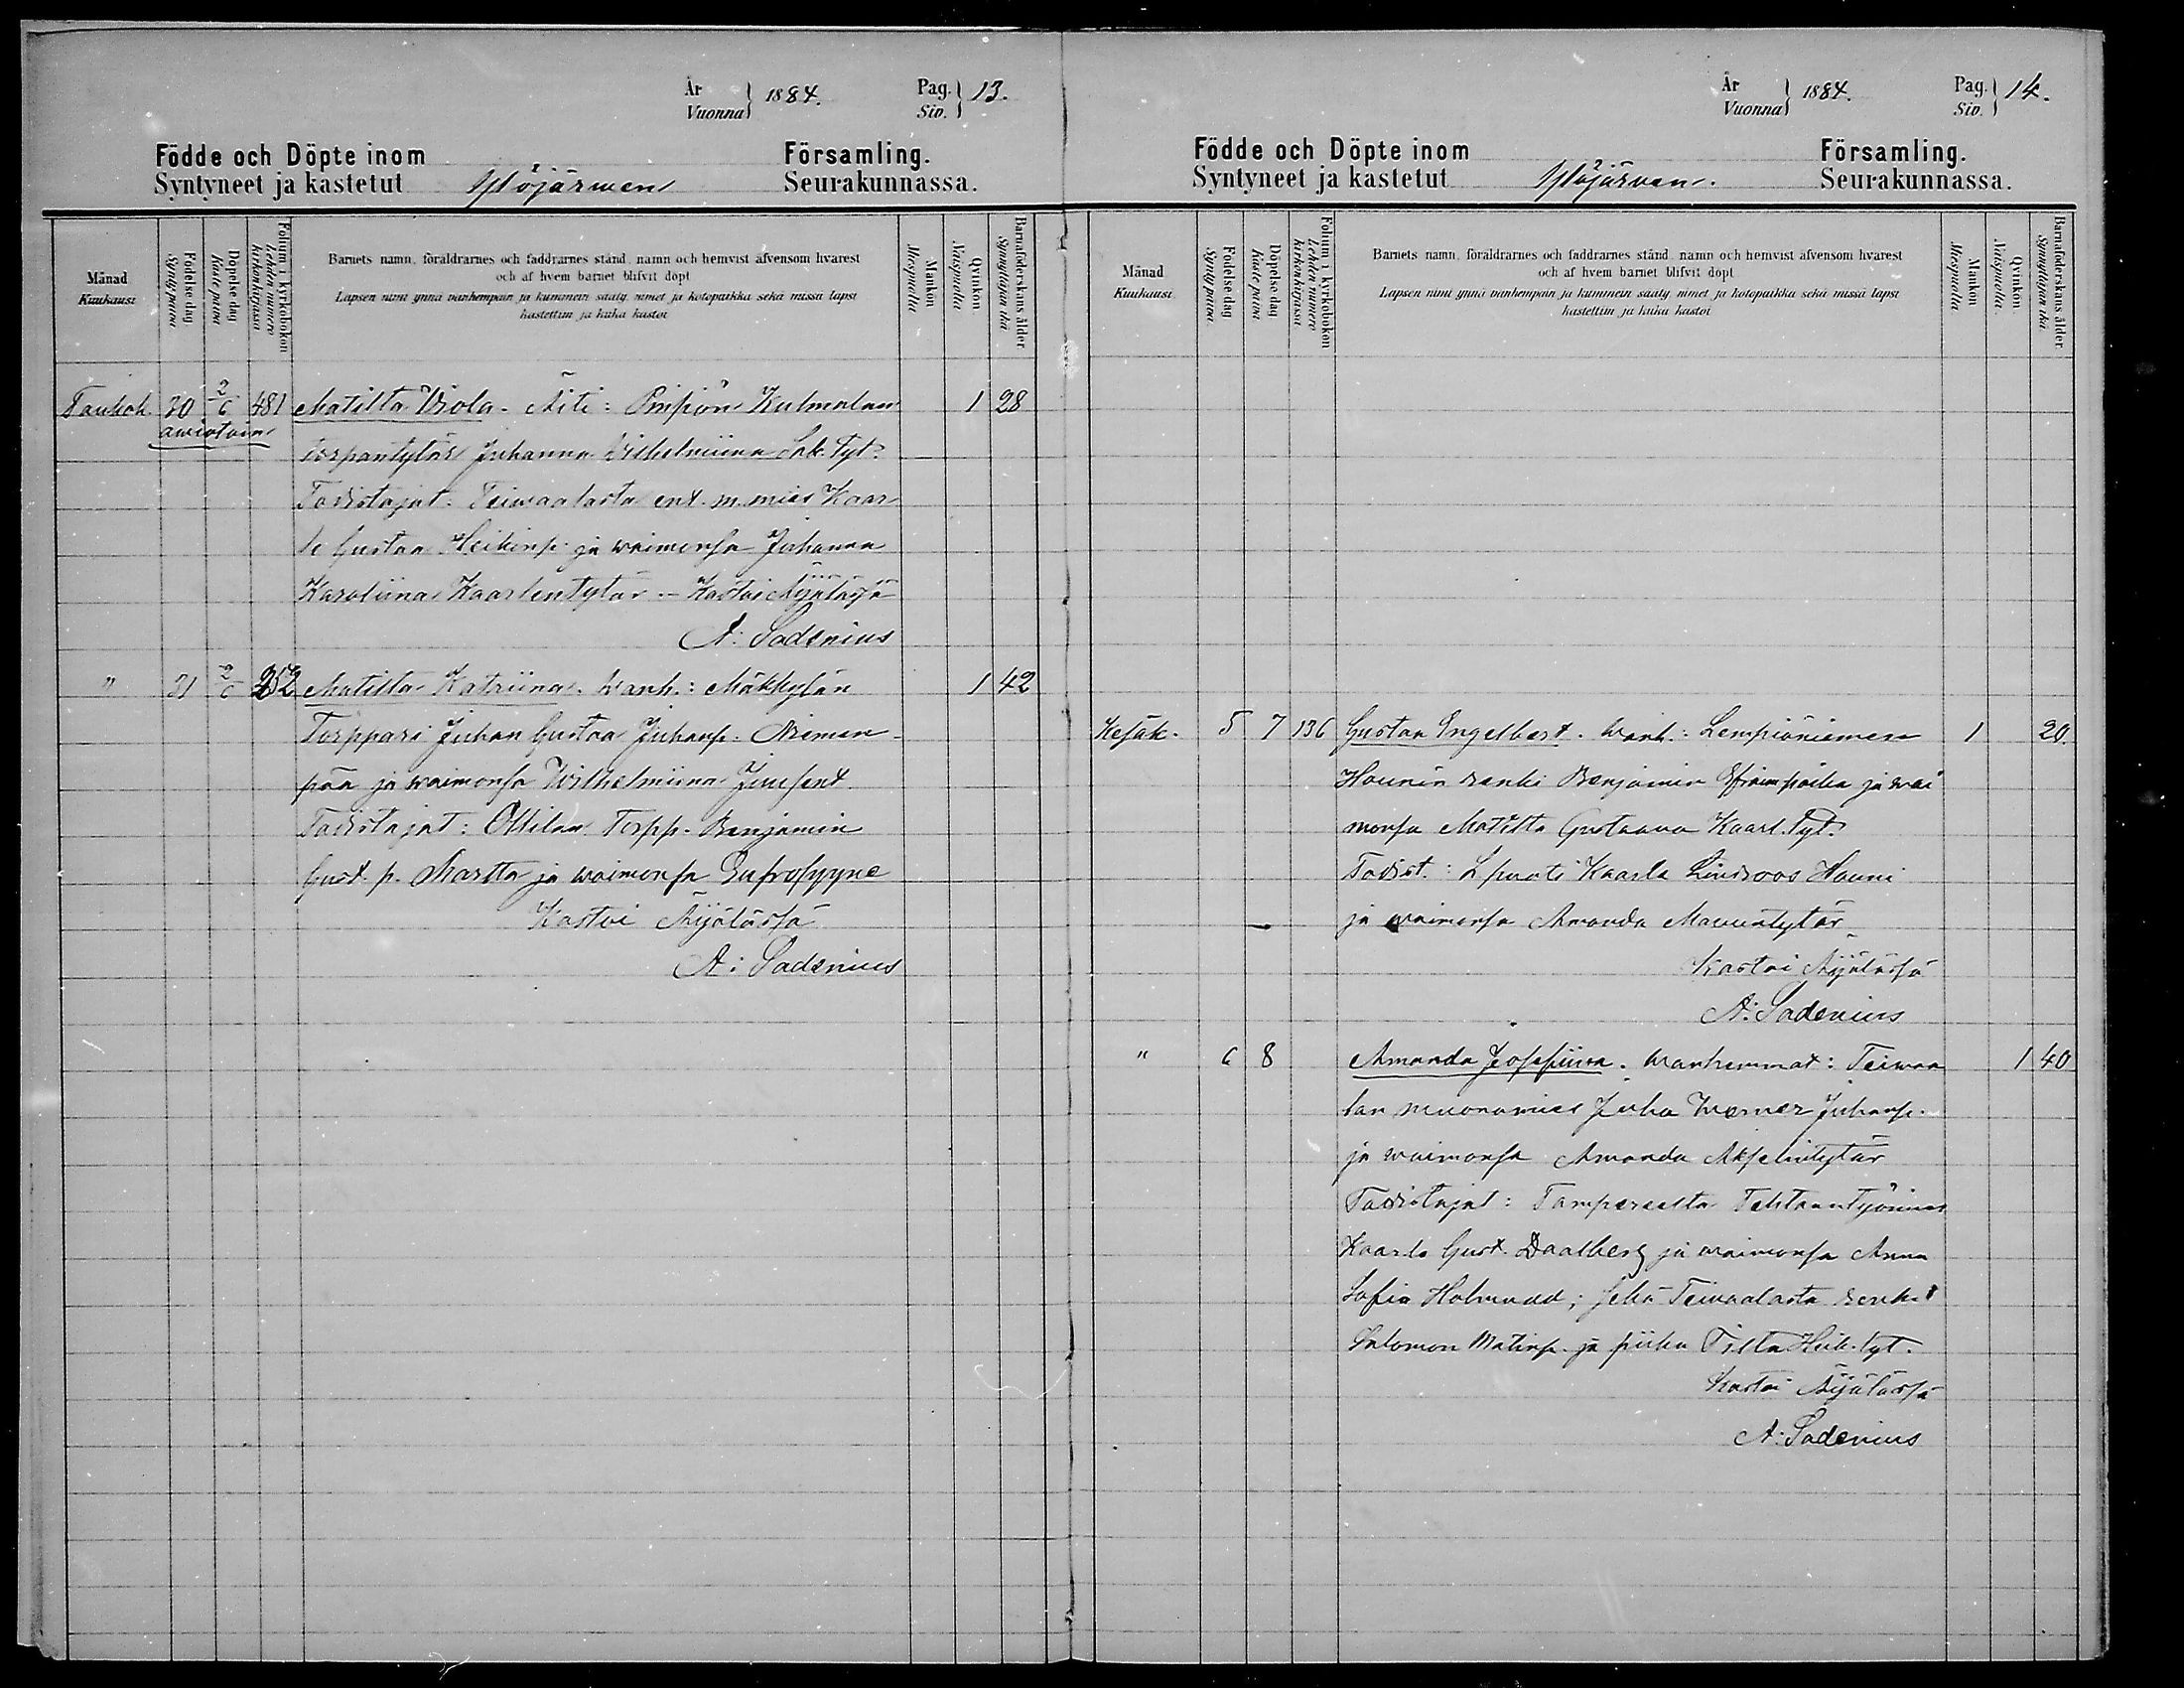 År Vuonna 1884. Pag. Siv. 13.
Födde och Döpte inom Församling.
Syntyneet ja kastetut Ylöjärwen Seurakunnassa.
Månad Kuukausi
Födelse dag Synty päivä
Döpelse dag Kaste päivä
Folium i kyrkoboken Lehden numero kirkonkirjassa
Barnets namn, föräldrarnes och faddrarnes stånd, namn och hemvist äfvensom hvarest
och af hvem barnet blifvit döpt
Lapsen nimi ynnä vanhempain ja kummein sääty, nimet ja kotopaikka sekä missä lapsi
kastettiin ja kuka kastoi
Mankön Miespuolta
Qvinkön Naispuolta
Barnaföderskans ålder Synnyttäjän ikä
Toukok. 30 2/6 481 Matilta Viola. Äiti: Pinsiön Kulmalan 1 28
awiotoin
torpantytär Juhanna Wilhelmiina Sak. tyt.
Todistajat: Teiwaalasta ent. m. mies Kaar
lo Gustaa Heikinp. ja waimonsa Juhanna
Karoliina Kaarlentytär. – Kastoi Äijälässä
A: Sadenius
" 31 2/6 252 Matilta Katriina. Wanh.: Mäkkylän 1 42
Torppari Juhan Gustaa Juhanp. Niemen-
pää ja waimonsa Wilhelmiina Juusent.
Todistajat: Ollilan Torpp. Benjamin
Gust. p. Martta ja waimonsa Eufrosyyne
Kastoi Äijälässä
A: Sadenius
År Vuonna 1884. Pag. Siv. 14.
Födde och Döpte inom Församling.
Syntyneet ja kastetut Ylöjärven. Seurakunnassa.
Månad Kuukausi
Födelse dag Synty päivä
Döpelse dag Kaste päivä
Folium i kyrkoboken Lehden numero kirkonkirjassa
Barnets namn, föräldrarnes och faddrarnes stånd, namn och hemvist äfvensom hvarest
och af hvem barnet blifvit döpt
Lapsen nimi ynnä vanhempain ja kummein sääty, nimet ja kotopaikka sekä missä lapsi
kastettiin ja kuka kastoi
Mankön Miespuolta
Qvinkön Naispuolta
Barnaföderskans ålder Synnyttäjän ikä
Kesäk. 5 7 136 Gustaa Engelbert. Wanh.: Lempiäniemen 1 20.
Haunin renki Benjamin Efraimpoika ja wai
monsa Matilta Gustaava Kaarl. tyt.
Todist.: Kaarlo Lindroos Hauni
ja waimonsa Amanda Mauuntytär
Kastoi Äijälässä
A: Sadenius
" 6 8 Amanda Josefiina. Wanhemmat: Teiwaa 1 40
lan muonamies Juha Werner Juhanp.
ja waimonsa Amanda Akselintytär
Todistajat: Tampereelta Tehtaantyömies
Kaarlo Gust. Daalberg ja waimonsa Anna
Sofia Holmudd; sekä Teiwaalasta renki
Salomon Matinp. ja piika Tilta Heik. tyt.
Kastoi Äijälässä
A: Sadenius